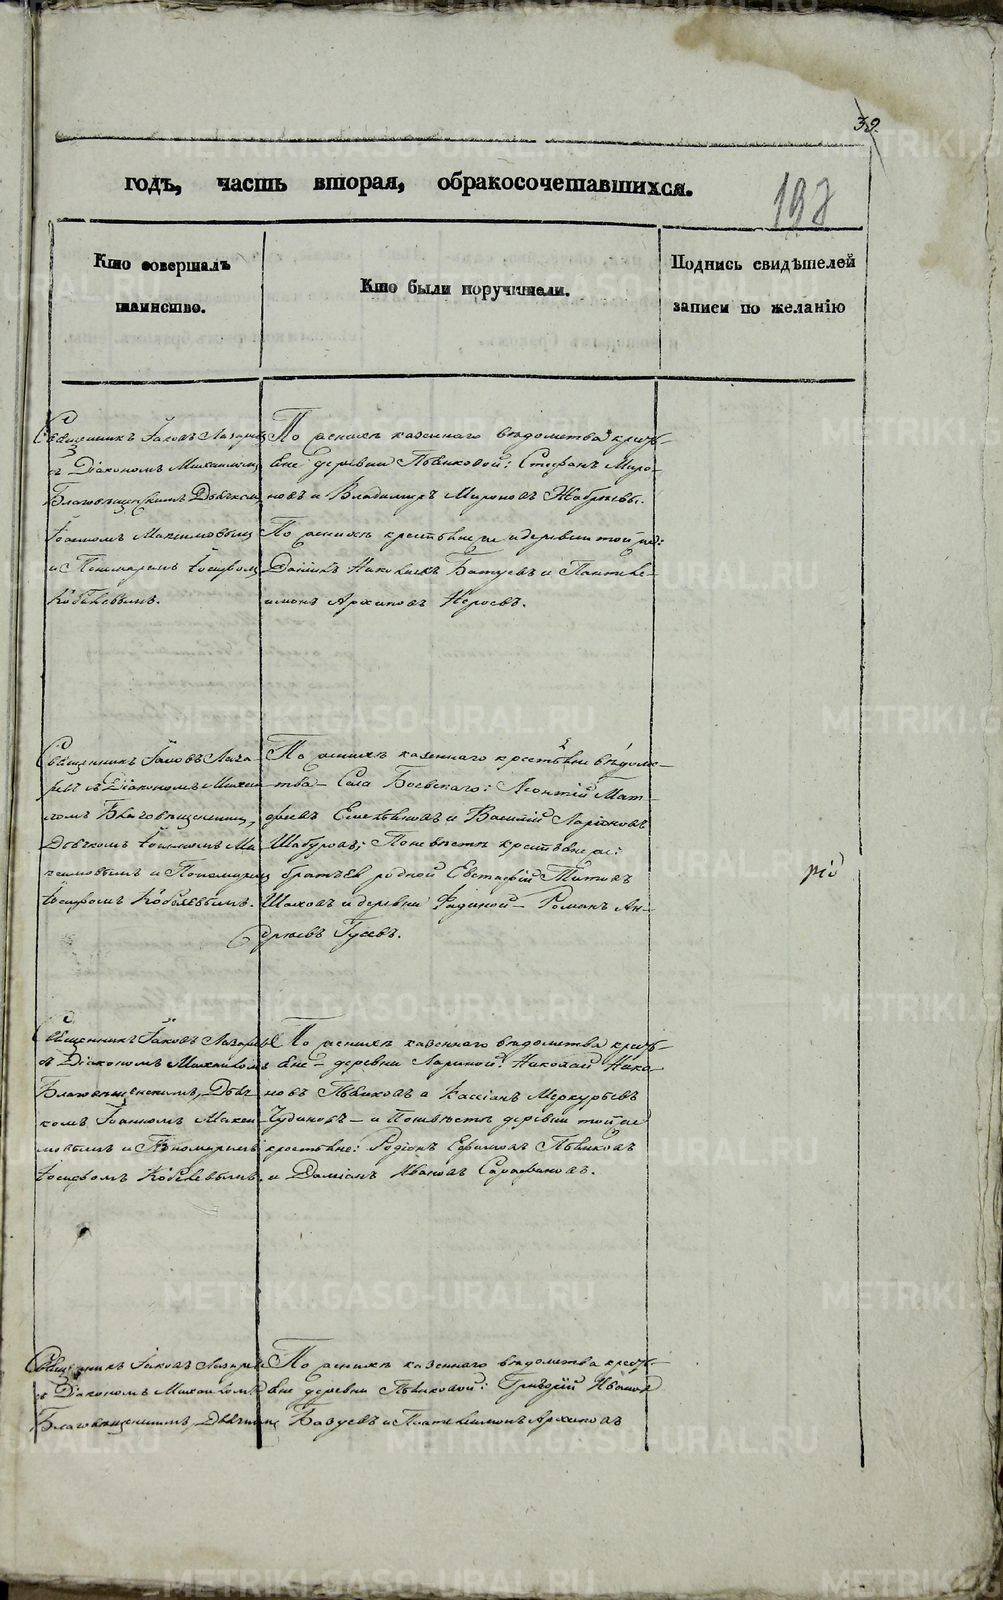 39.
197
годъ, часть вторая, обракосочетавшихся.
Кто совершалъ
таинство.
Кто были поручители.
Подпись свидѣтелей
записи по желанію
Священникъ Іаковъ Лазаревъ
съ Діакономъ Михаиломъ
Благовѣщенскимъ Дьячкомъ
Іоанномъ Максимовымъ
и Пономаремъ Іосифомъ
По женихѣ казеннаго вѣдомства кресть-
яне деревни Пьянковой: Стефанъ Миро-
новъ и Владимиръ Мироновъ
По невѣстѣ крестьяне и деревни той же:
и Пантеле-
имонъ Архиповъ
Священникъ Іаковъ Лаза-
ревъ съ Діакономъ Михаи-
ломъ Благовѣщенскимъ,
Дьячкомъ Іоанномъ Ма-
ксимовымъ и Пономаремъ
Іосифомъ
По женихѣ казеннаго крестьяне вѣдомс-
тва Села Боевскаго: Леонтій Мат-
фѣевъ Емельяновъ и Василій Ларіоновъ
Шабуровъ; По невѣстѣ крестьяне же:
братъ родной Евстафій Титовъ
и деревни Романъ Ан-
дреевъ Гусевъ.
Священникъ Іаковъ Лазаревъ
съ Діакономъ Михаиломъ
Благовѣщенскимъ, Дьяч-
комъ Іоанномъ Макси-
мовымъ и Пономаремъ
Іосифомъ
По женихѣ казеннаго вѣдомства кресть-
яне деревни Лариной: Николай
Пьянковъ и Кассіанъ Меркурьевъ
Чудиновъ и По невѣстѣ деревни той же
крестьяне: Родіонъ Ефимовъ Пьянковъ
и Даміанъ Ивановъ Сарафановъ.
Священникъ Іаковъ Лазаревъ
съ Діакономъ Михаиломъ
Благовѣщенскимъ, Дьячкомъ
По женихѣ казеннаго вѣдомства кресть-
яне деревни Пьянковой: Григорій Ивановъ
и Пантелеимонъ Архиповъ
METRIKI.GASO-URAL.RU